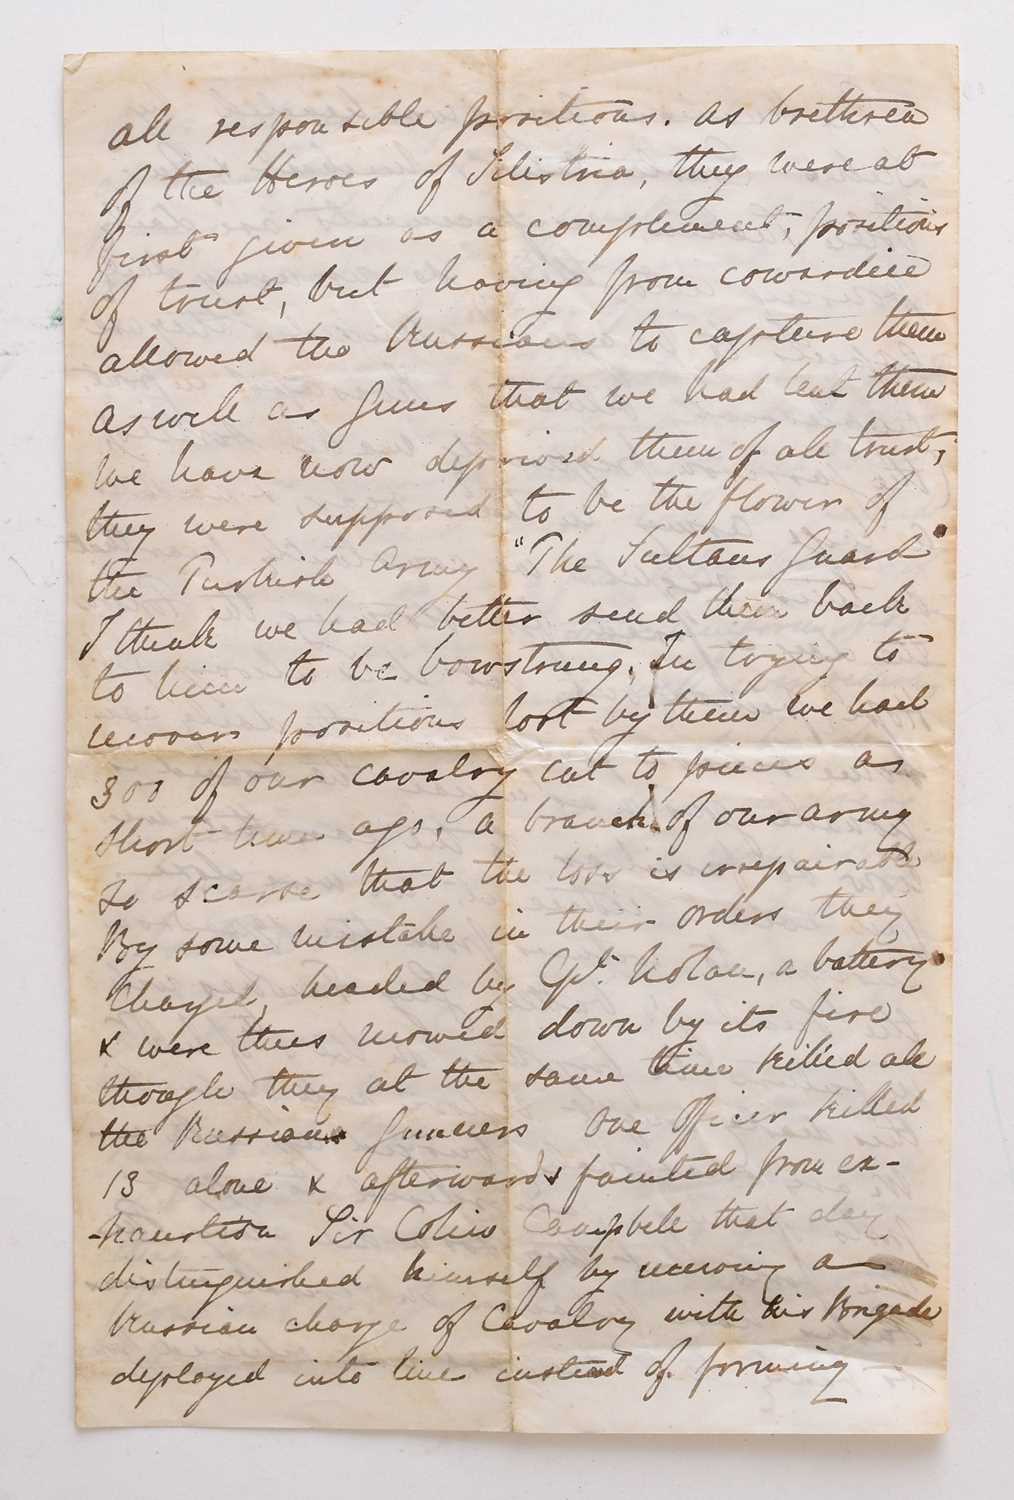 all responsible positions. as brethren
of the Heroes of Silistria, they were at
first given as a complement, positions
of trust, but having from cowardice
allowed the Russians to capture them
as well as Guns that we had lent them
we have now deprived them of all trust,
they were supposed to be the flower of
the Turkish Army "The Sultans Guard"
I think we had better send them back
to him to be bowstrung. In trying to
recover positions lost by them we had
300 of our cavalry cut to pieces a
short time ago, a branch of our army
so scarse that the loss is irrepairable
By some mistake in their orders they
charged, headed by Cpt. Nolan, a battery
& were thus mowed down by its fire
though they at the same time killed all
the Russians Gunners One Officer killed
13 alone & afterwards fainted from ex-
-haustion Sir Colin Campbell that day
distinguished himself by receiving a
Russian charge of Cavalry with his Brigade
deployed into line instead of forming